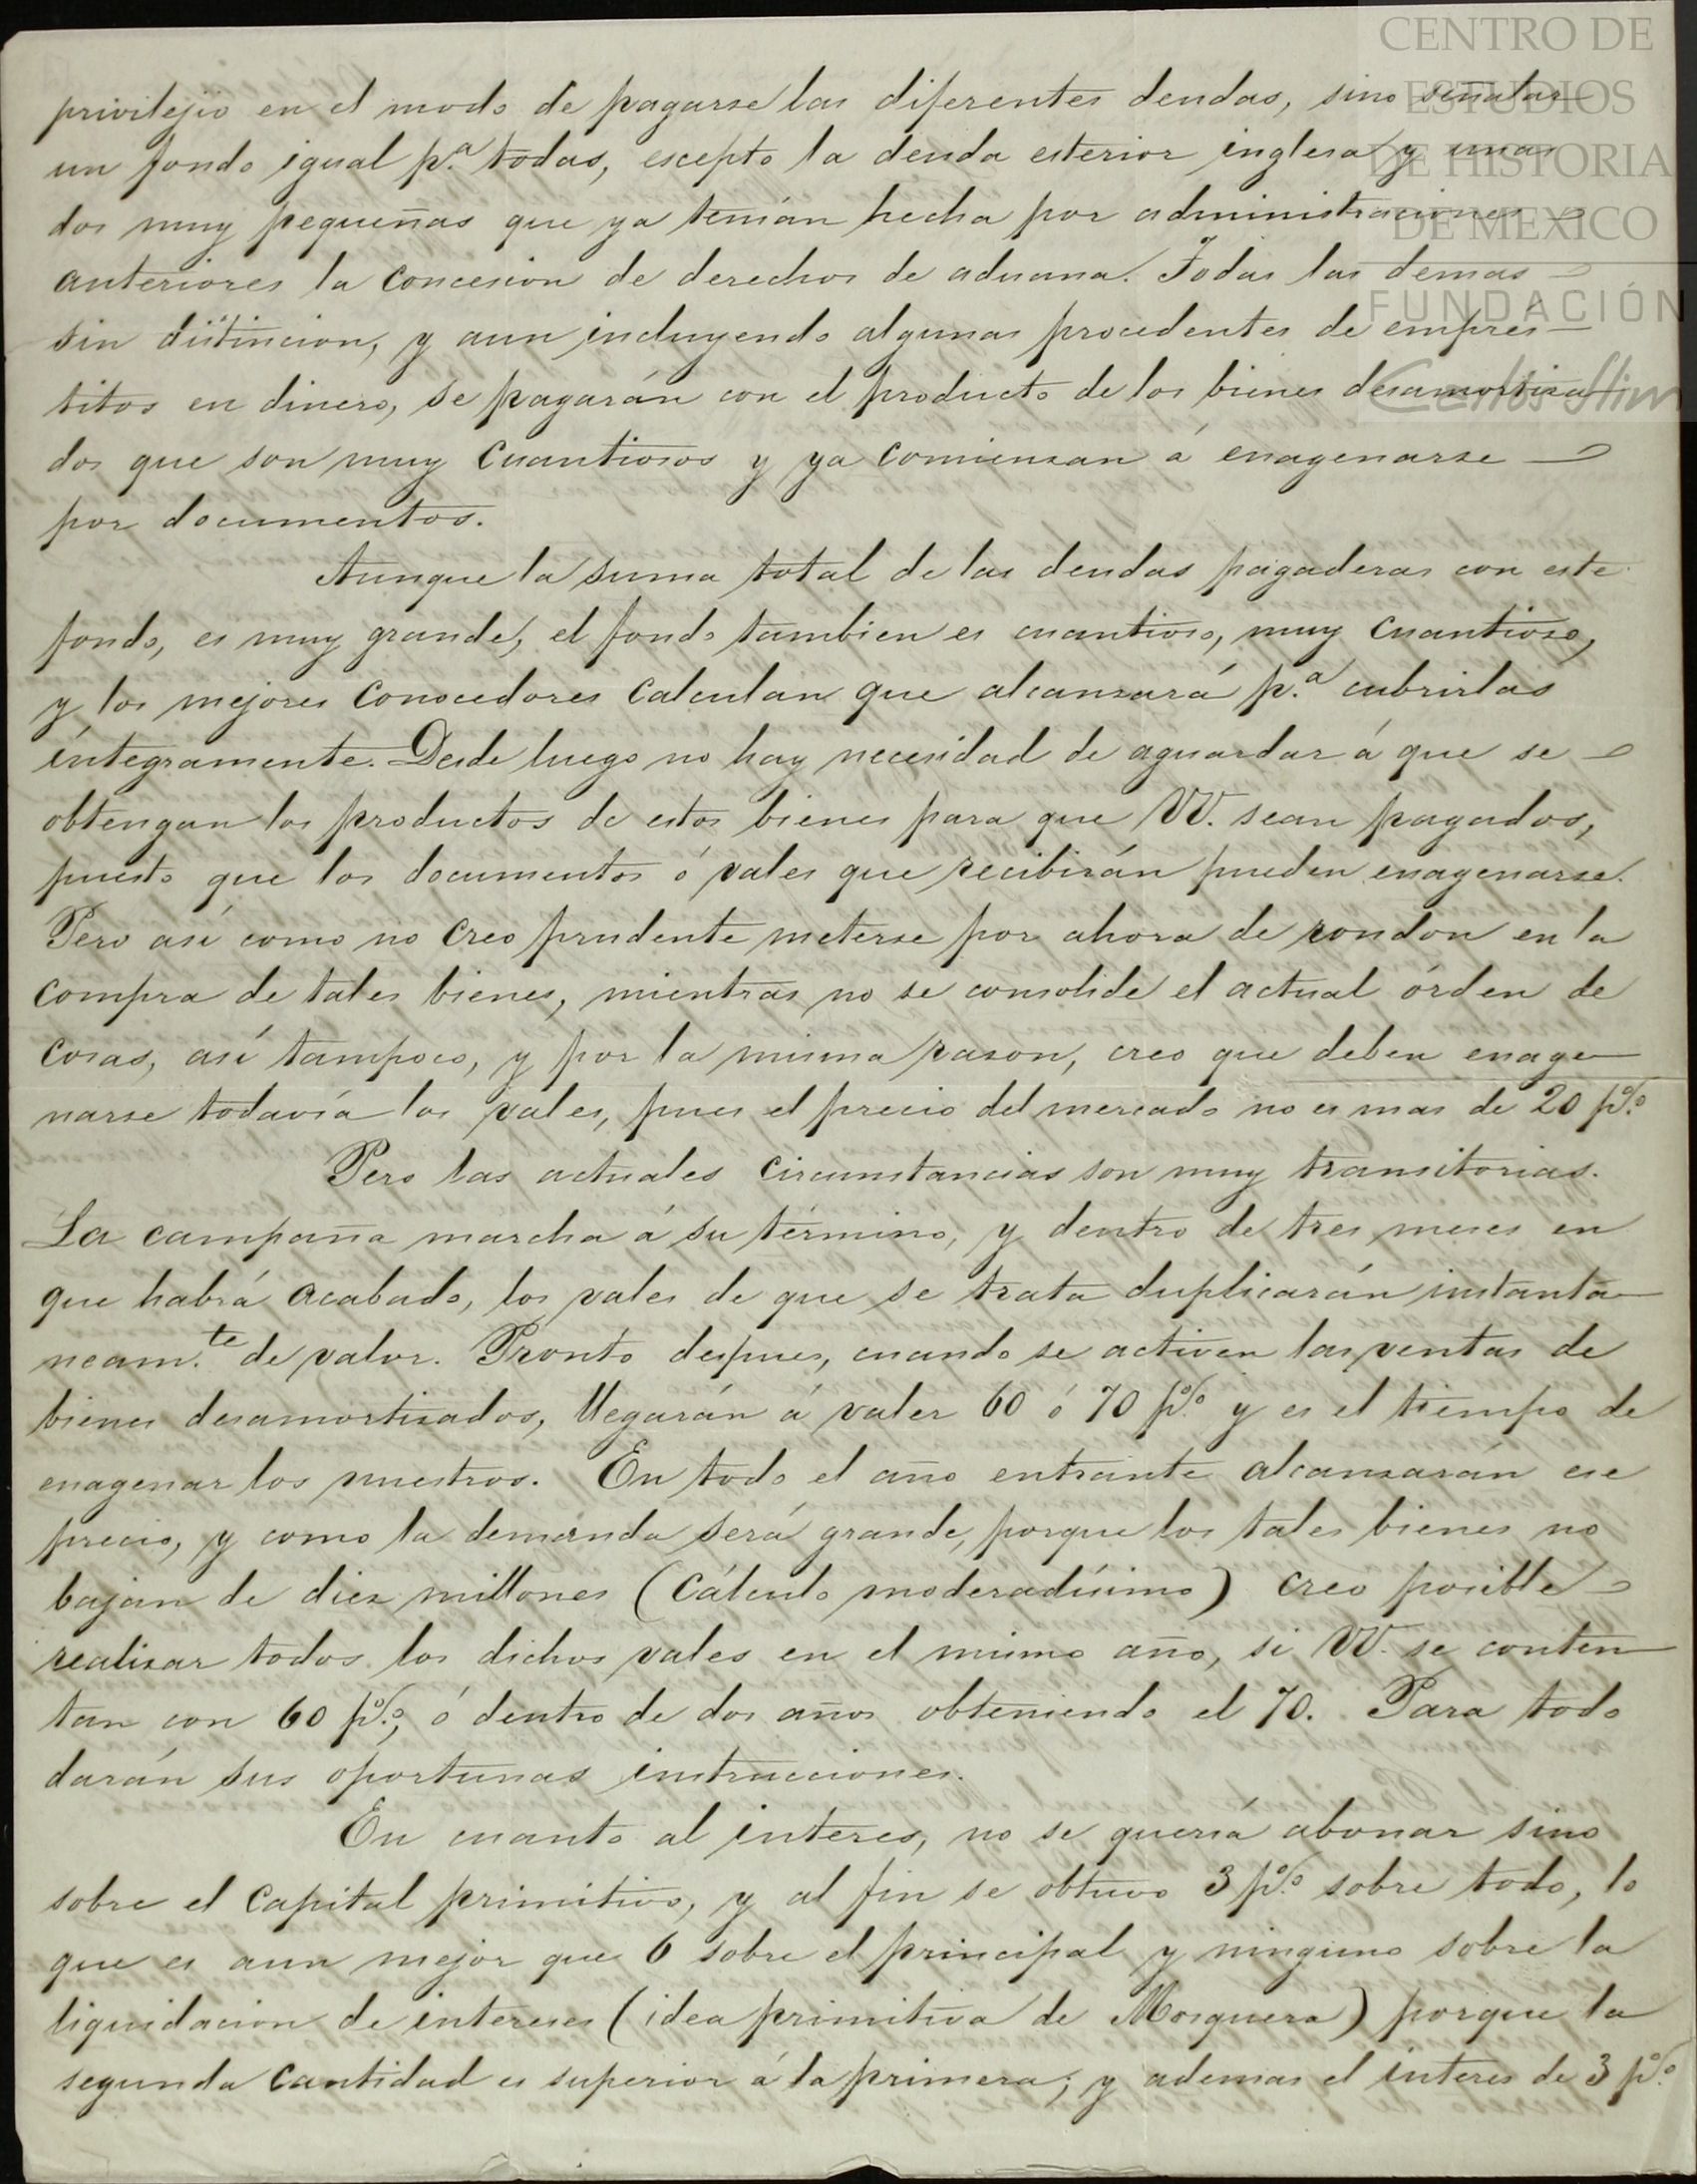 CENTRO DE
ESTUDIOS
DE HISTORIA
DE MEXICO
FUNDACIÓN
Carlos Slim
privilejio en el modo de pagarse las diferentes deudas, sino señalar
un fondo igual p.ª todas, escepto la deuda esterior inglesa y unas
dos muy pequeñas que ya tenían hecha por administraciones
anteriores la concesion de derechos de aduana. Todas las demas
sin distincion, y aun incluyendo algunas procedentes de empres-
titos en dinero, se pagarán con el producto de los bienes desamortiza-
dos que son muy cuantiosos y ya comienzan á enagenarse
por documentos.
Aunque la suma total de las deudas pagaderas con este
fondo, es muy grande, el fondo tambien es cuantioso, muy cuantioso,
y los mejores conocedores calculan que alcanzará p.ª cubrirlas
íntegramente. Desde luego no hay necesidad de aguardar á que se
obtengan los productos de estos bienes para que VV. sean pagados,
puesto que los documentos ó vales que recibirán pueden enagenarse.
Pero así como no creo prudente meterse por ahora de rondon en la
compra de tales bienes, mientras no se consolide el actual órden de
cosas, así tampoco, y por la misma razon, creo que deben enage-
narse todavía los vales, pues el precio del mercado no es mas de 20 p%
Pero las actuales circunstancias son muy transitorias.
La campaña marcha á su término, y dentro de tres meses en
que habrá acabado, los vales de que se trata duplicarán instantá-
neam.te de valor. Pronto despues, cuando se activen las ventas de
bienes desamortizados, llegarán á valer 60 ó 70 p% y es el tiempo de
enagenar los nuestros. En todo el año entrante alcanzarán ese
precio, y como la demanda será grande, porque los tales bienes no
bajan de diez millones (cálculo moderadísimo) creo posible
realizar todos los dichos vales en el mismo año, si VV. se conten-
tan con 60 p%, ó dentro de dos años obteniendo el 70. Para todo
darán sus oportunas instrucciones.
En cuanto al interes, no se quería abonar sino
sobre el capital primitivo, y al fin se obtuvo 3 p% sobre todo, lo
que es aun mejor que 6 sobre el principal y ninguno sobre la
liquidacion de intereses (idea primitiva de Mosquera) porque la
segunda cantidad es superior á la primera; y ademas el interes de 3 p%